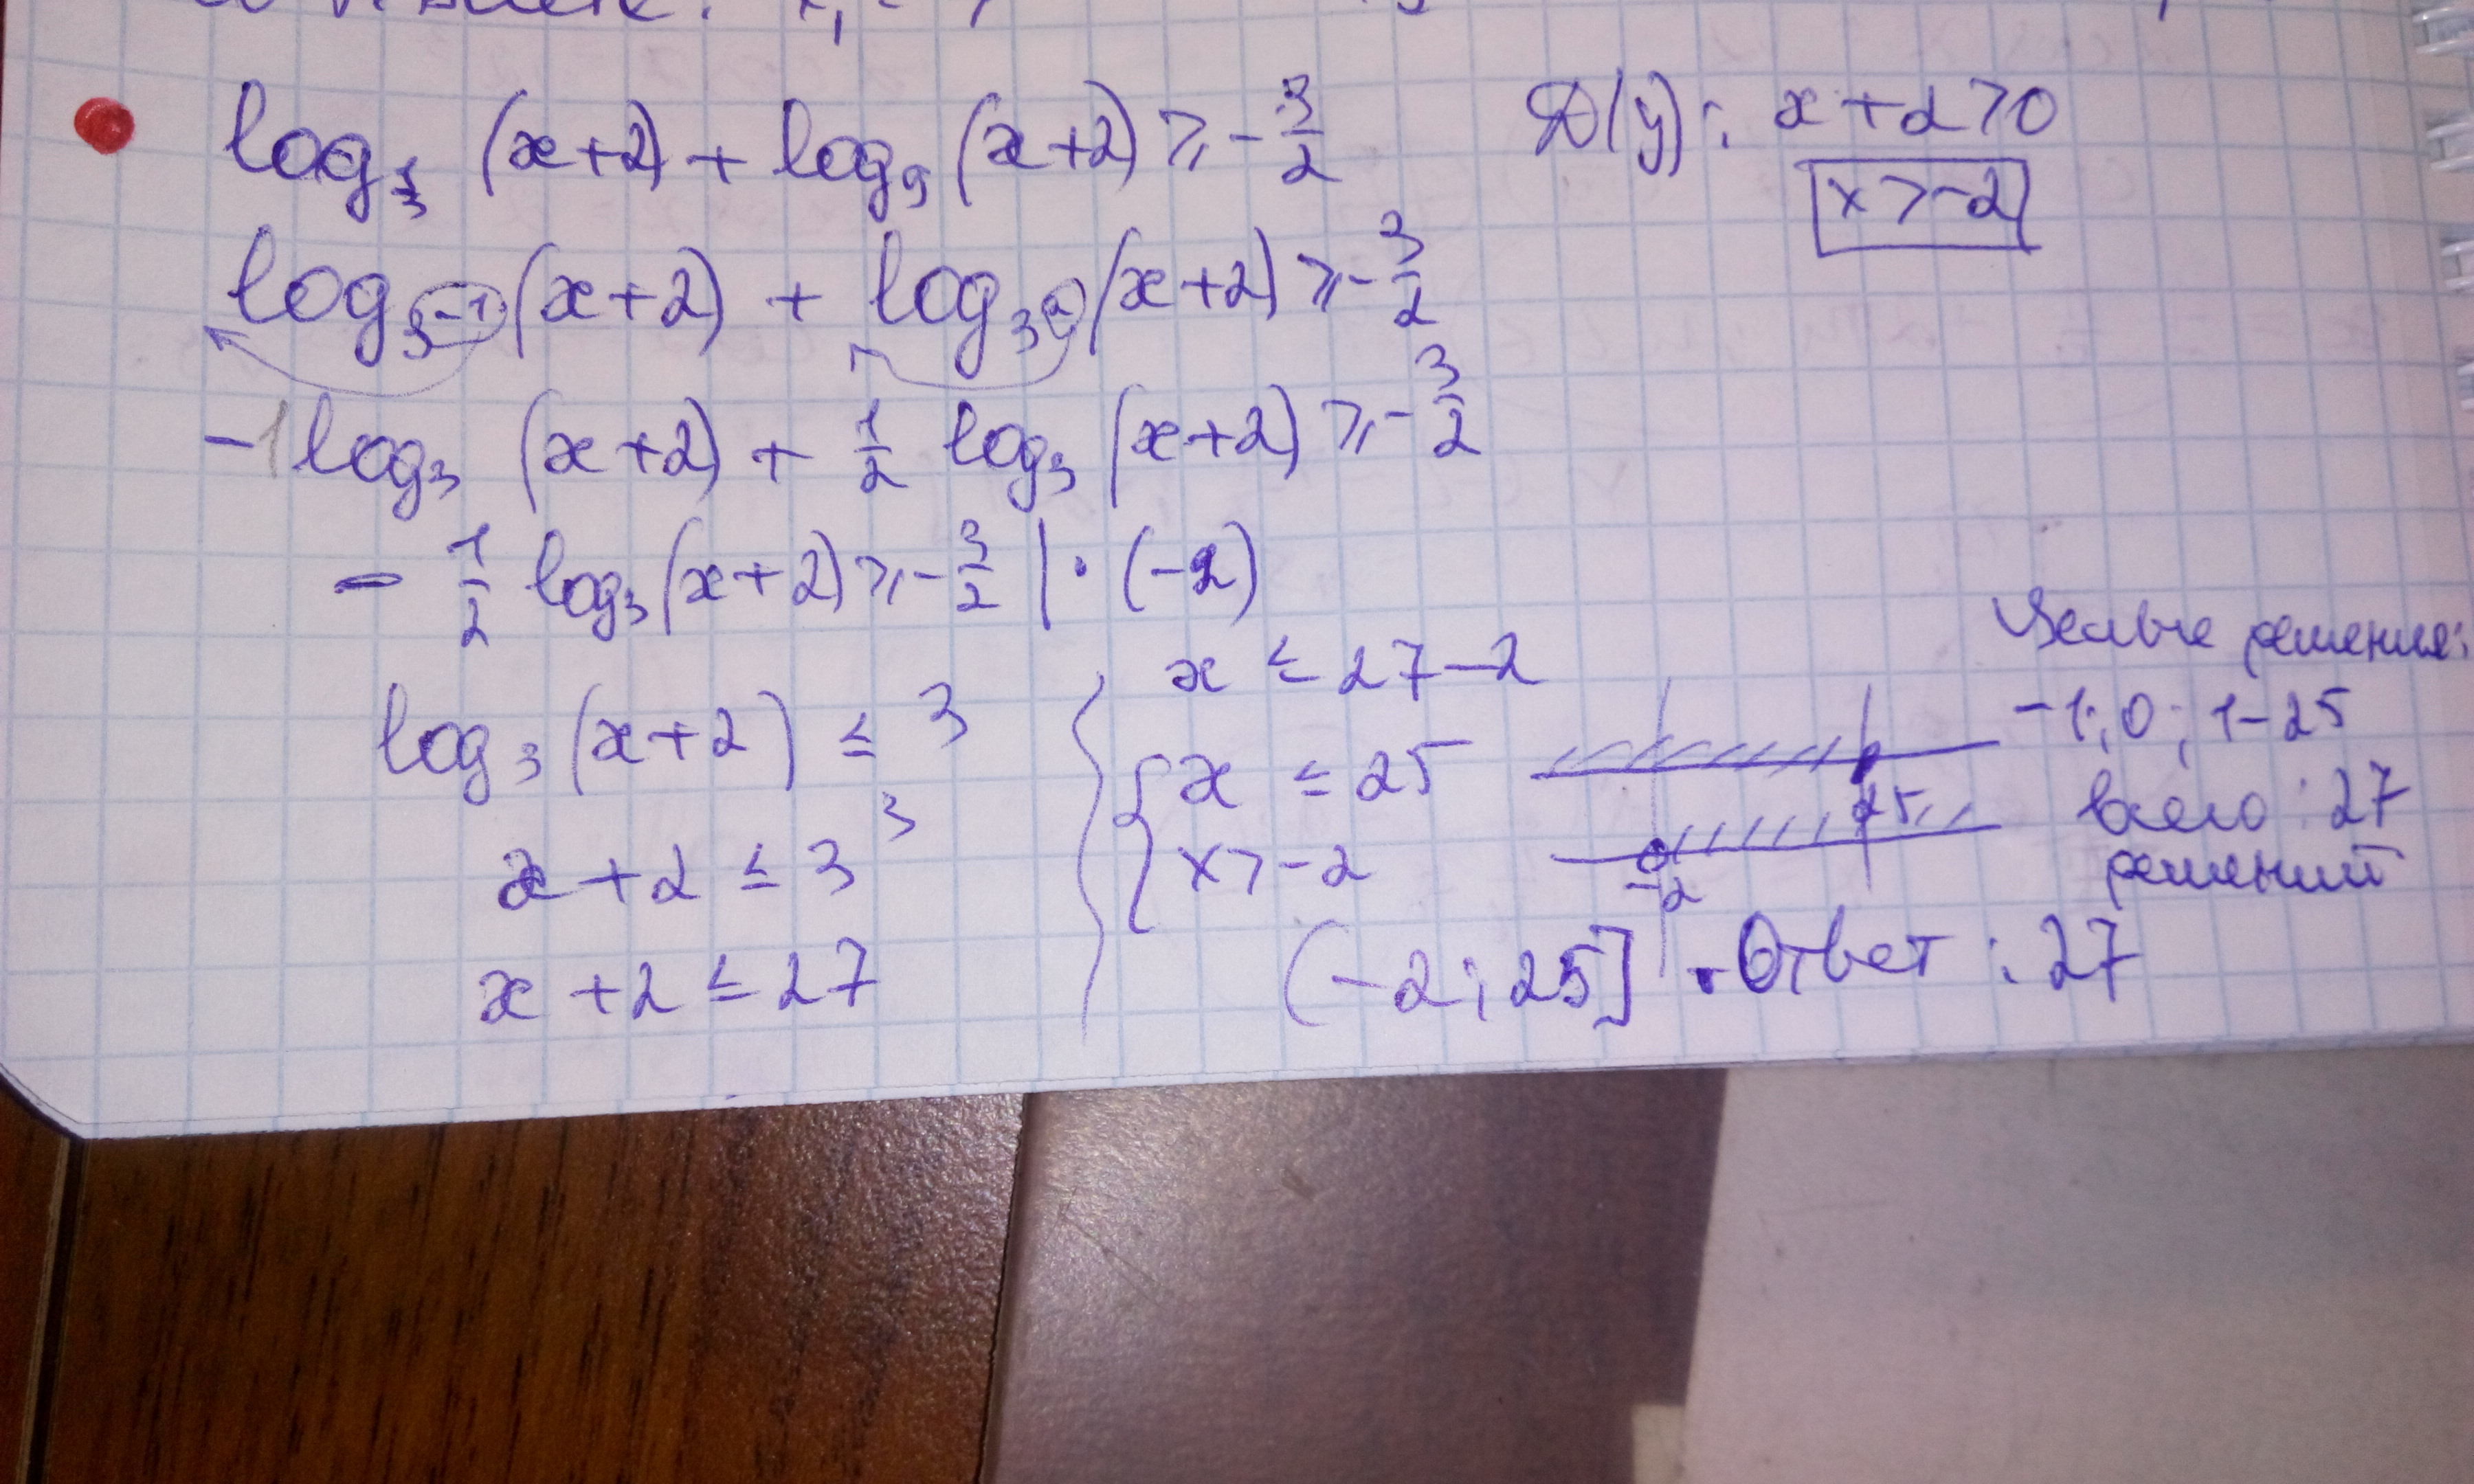 log_{1/3} (x+2) + log_9 (x+2) ⩾ -3/2
D(y): x+2>0
x>-2
log_{3^{-1}} (x+2) + log_{3^2} (x+2) ⩾ -3/2
-1 log_3 (x+2) + 1/2 log_3 (x+2) ⩾ -3/2
- 1/2 log_3 (x+2) ⩾ -3/2 | · (-2)
log_3 (x+2) ≤ 3
x+2 ≤ 3^3
x+2 ≤ 27
x ≤ 27-2
{ x ≤ 25
x>-2
25
-2
(-2; 25]
Целые решения:
-1; 0; 1-25
всего: 27
решений
Ответ: 27